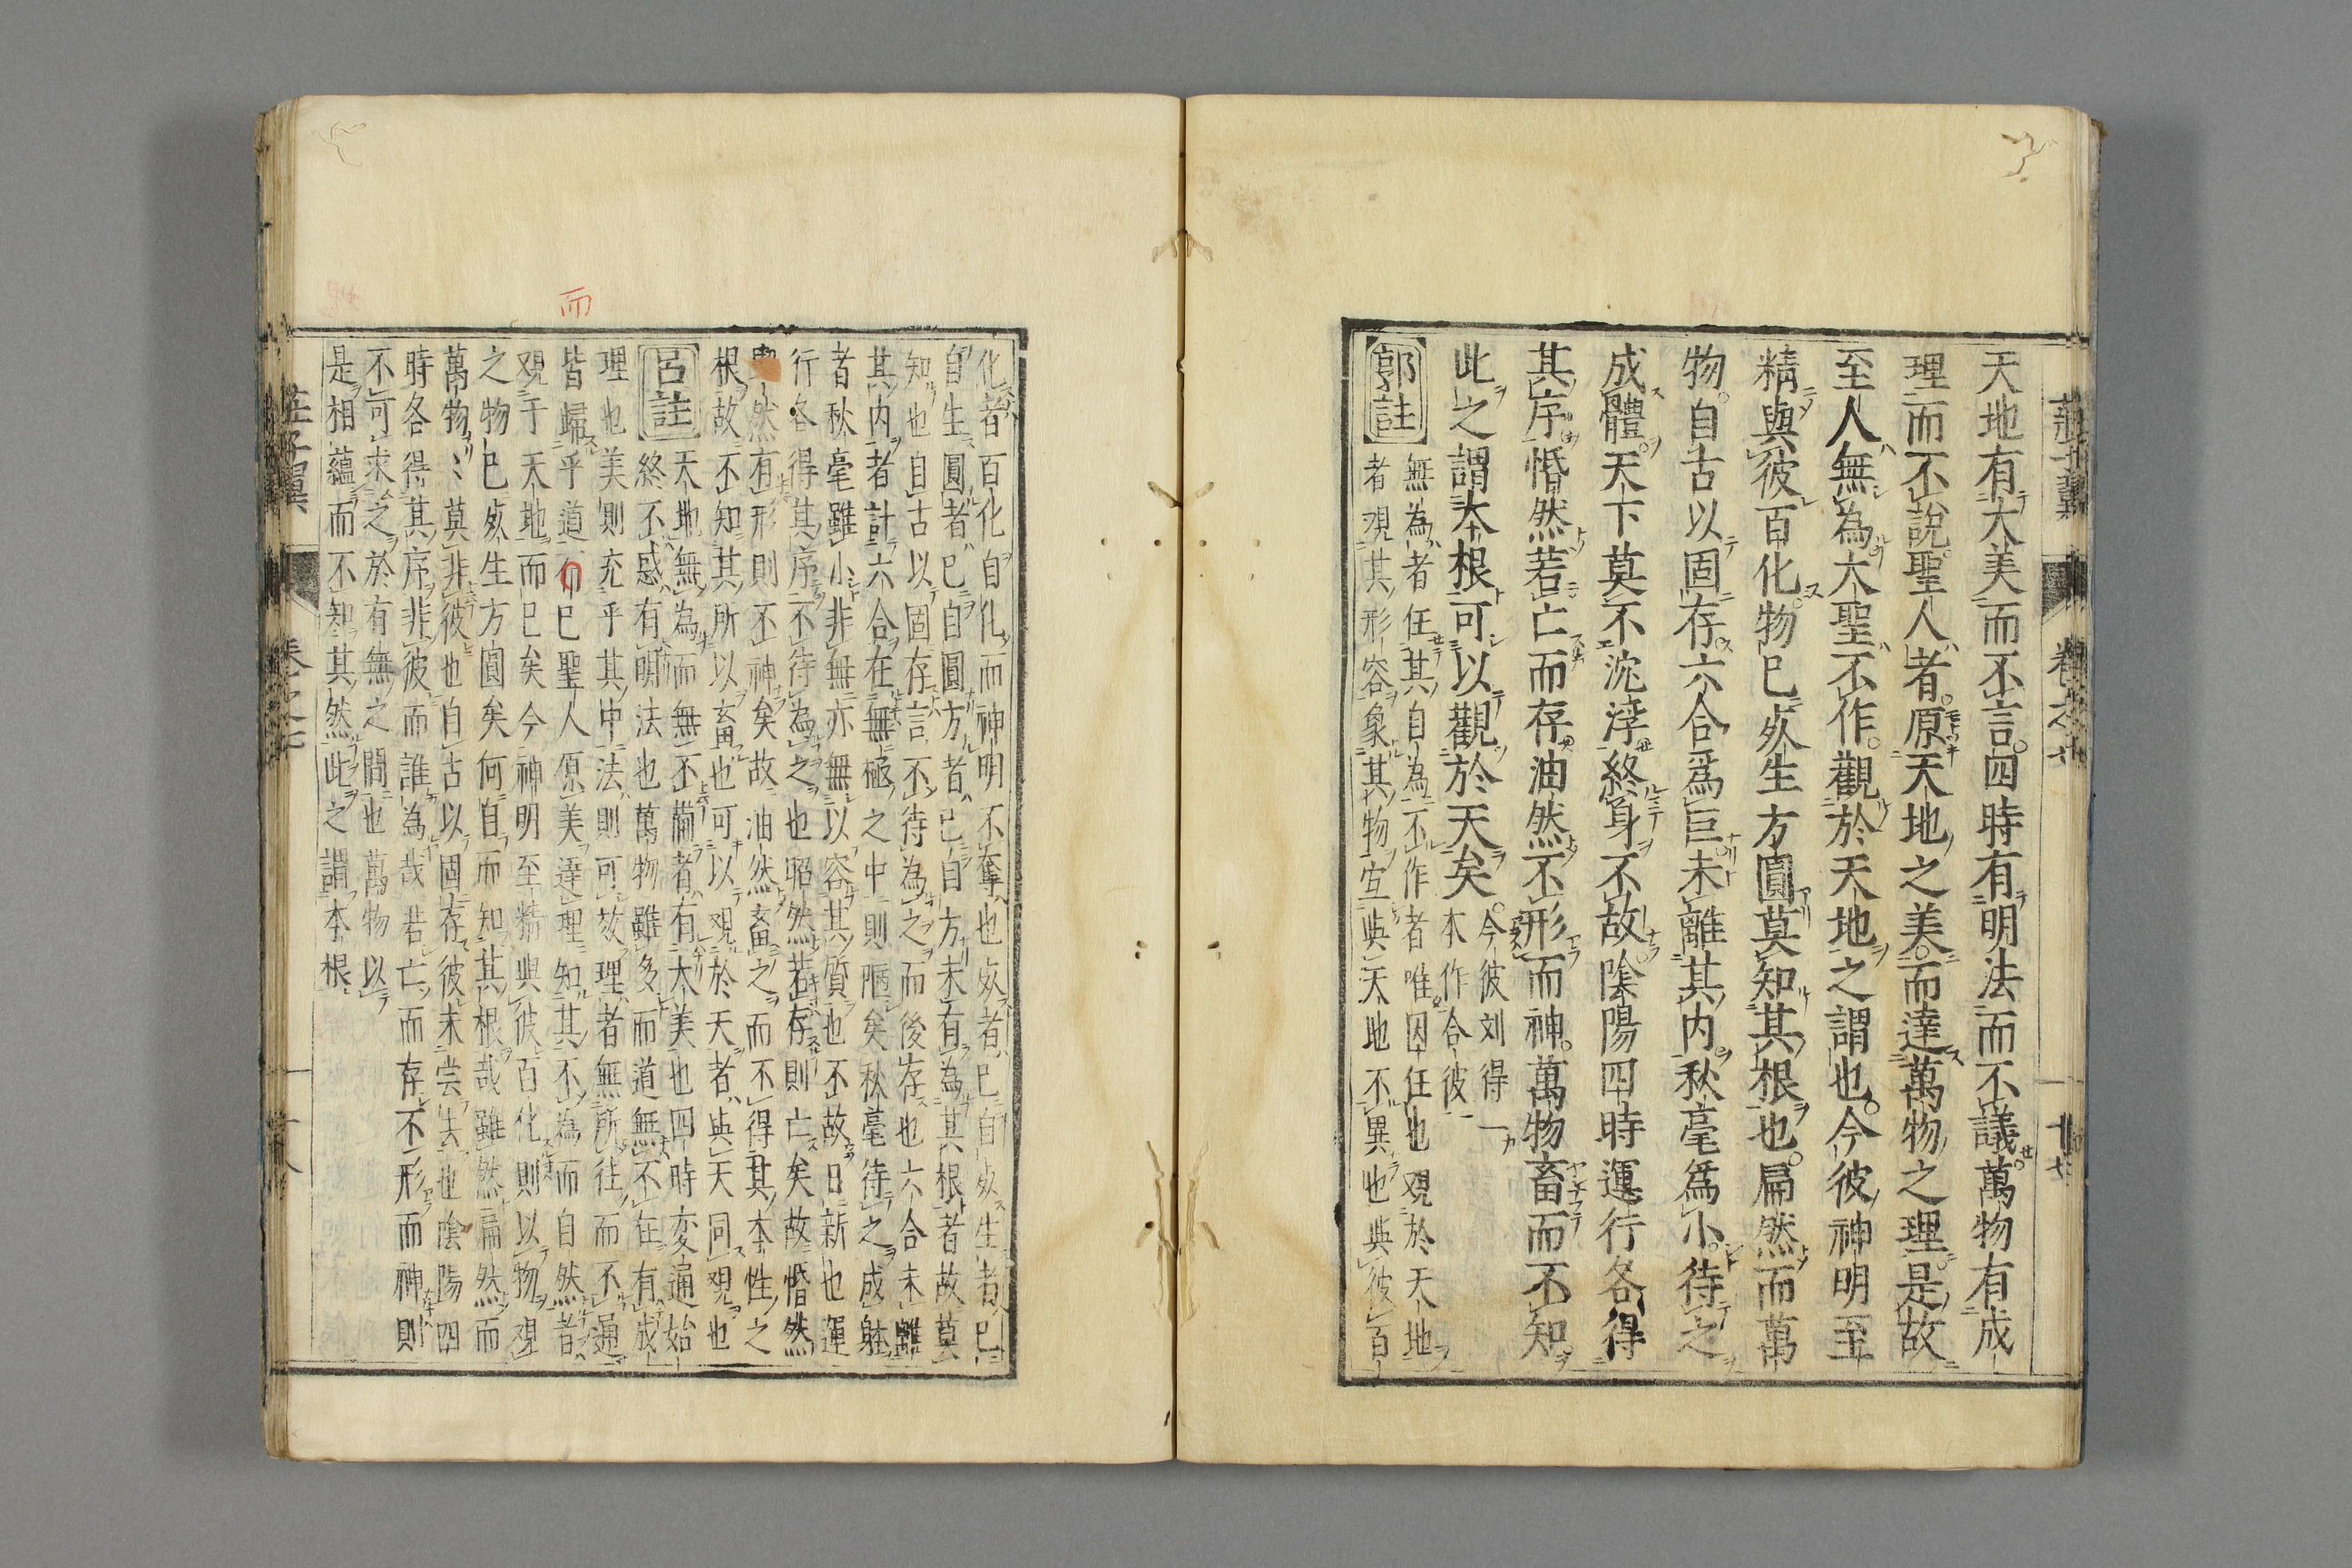 天地有大美而不言四時有明法而不議萬物有成
理而不說聖人者原天地之美而達萬物之理是故
至人無為大聖不作觀於天地之謂也今彼神明至
精與彼百化物已死生方圓莫知其根也扁然而萬
物自古以固存六合爲巨未離其内秋毫爲小待之
成體天下莫不沈浮終身不故陰陽四時運行各得
其序惛然若亡而存油然不形而神萬物畜而不知
此之謂本根可以觀於天矣
今彼刘得一
本作合彼
郭註
無為者任其自為不作者唯因任也观於天地
者观其形容象其物宜與天地不異也與彼百
化者百化自化而神明不奪也死者已自死生者已
自生圓者已自圓方者已自方未有為其根者故莫
知也自古以固存言不待為之而後存也六合未離
其内者計六合在無極之中則陋矣秋毫待之成躰
者秋毫雖小非無亦無以容其質也不故日新也運
行各得其序不待為之也昭然若存則亡矣故惛然
然有形則不神矣故油然畜之而不得其本性之
根故不知其所以畜也可以观於天者與天同观也
呂註
天地無為而無不爾者有大美也四時变通始
終不惑有明法也萬物雖多而道無不在有成
理也美則充乎其中法則可故理者無所往而不通
皆歸乎道而已聖人原美達理知其不為而自然者
观于天地而已矣今神明至精與彼百化則以物观
之物已死生方圓矣何自而知其根哉雖然扁然而
萬物〻莫非彼也自古以固存彼未尝去也陰陽四
時各得其序非彼而誰為哉若亡而存不形而神則
不可求之於有無之間也萬物以
是相蘊而不知其然此之謂本根
而
莊子翼
卷之七
十八